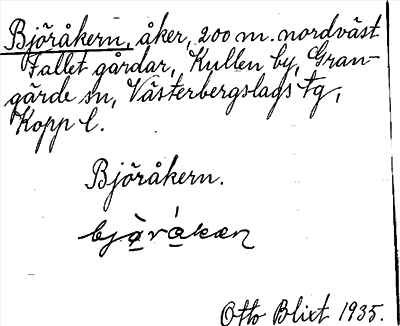 Björåkern, åker, 200 m. nordväst
Fallet gårdar, Kullen by, Gran-
gärde sn, Västerbergslags tg,
Kopp l.
Björåkern.
Otto Blixt 1935.